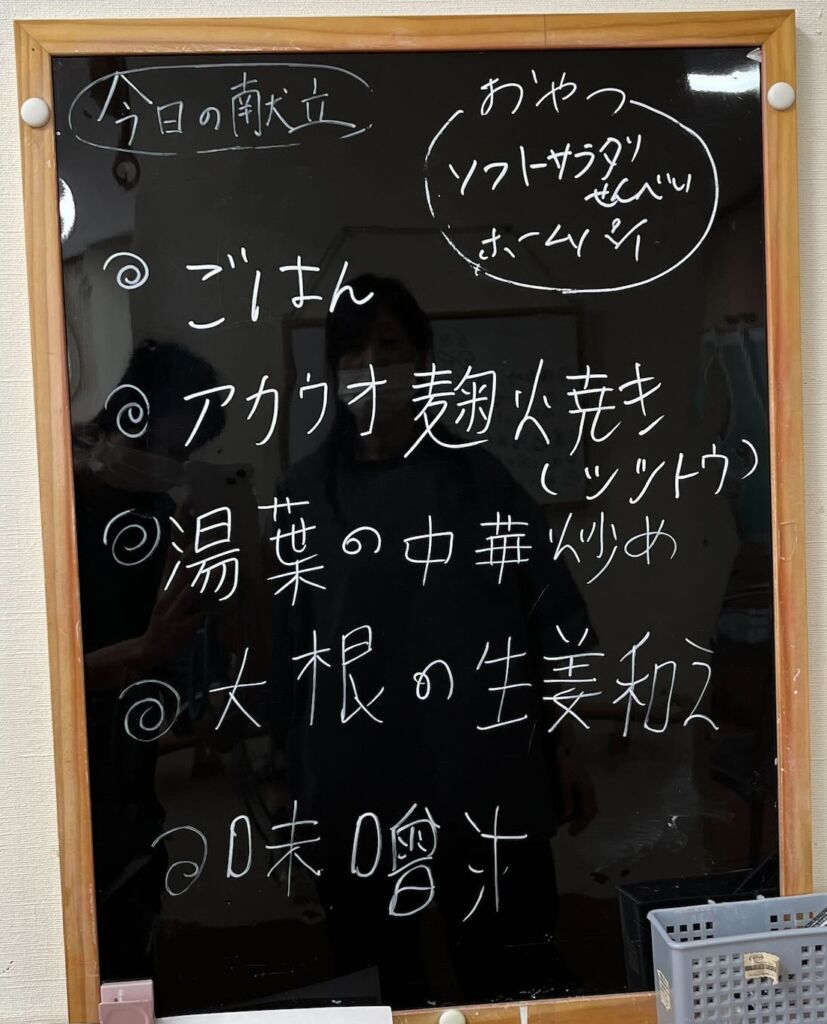 今日の献立
おやつ
ソフトサラダ
せんべい
ホームパイ
ごはん
アカウオ麹焼き
(ツツトウ)
湯葉の中華炒め
大根の生姜和え
味噌汁